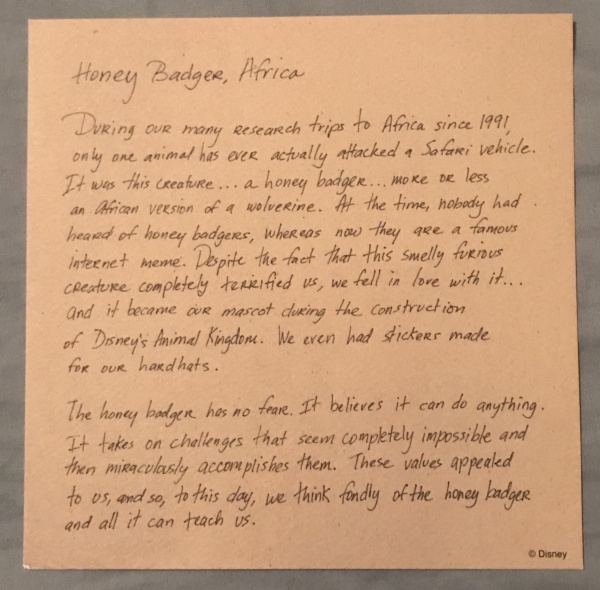 Honey Badger, Africa
During our many research trips to Africa since 1991,
only one animal has ever actually attacked a Safari vehicle.
It was this creature... a honey badger... more or less
an African version of a wolverine. At the time, nobody had
heard of honey badgers, whereas now they are a famous
internet meme. Despite the fact that this smelly furious
creature completely terrified us, we fell in love with it...
and it became our mascot during the construction
of Disney's Animal Kingdom. We even had stickers made
for our hardhats.
The honey badger has no fear. It believes it can do anything.
It takes on challenges that seem completely impossible and
then miraculously accomplishes them. These values appealed
to us, and so, to this day, we think fondly of the honey badger
and all it can teach us.
© Disney